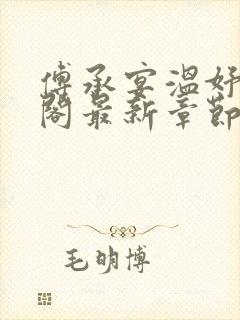 傅承宴温妤
阁最新章節
毛明博